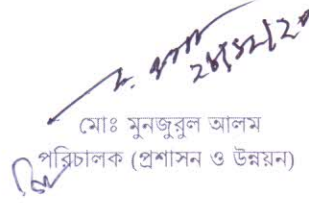 মোঃ মুনজুরুল আলম
পরিচালক (প্রশাসন ও উন্নয়ন)